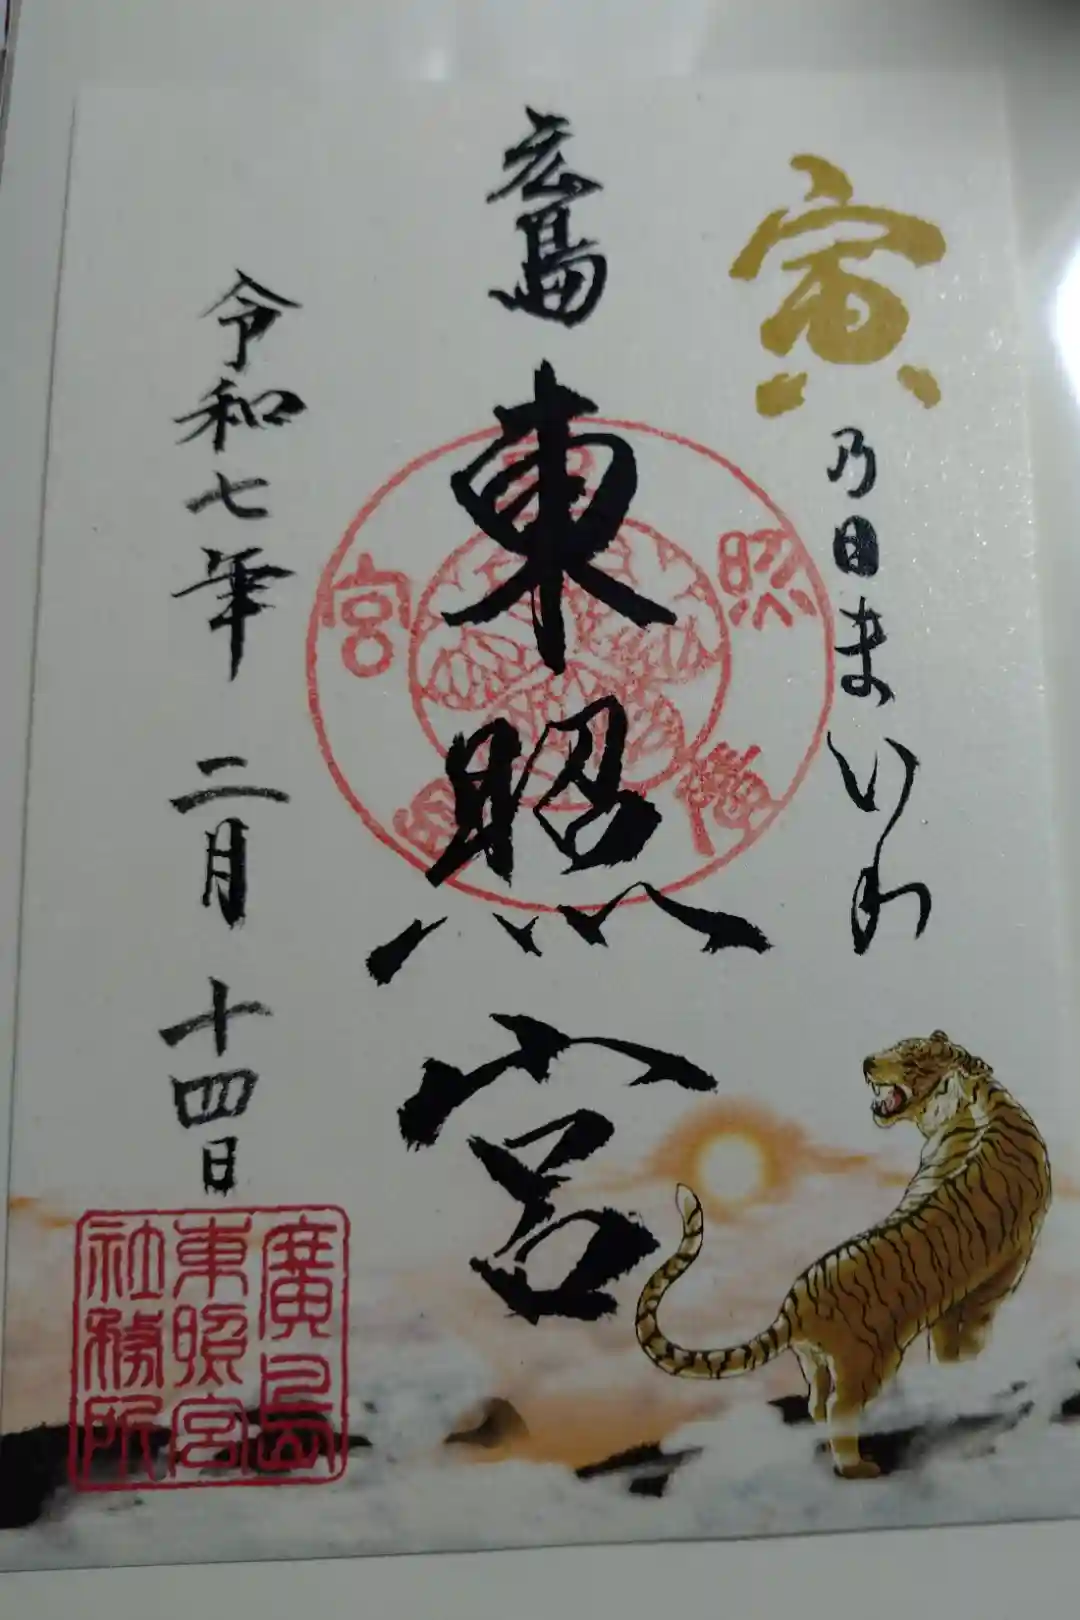 寅乃日まいり
広島
東照宮
令和七年 二月 十四日
廣島
東照宮
社務所